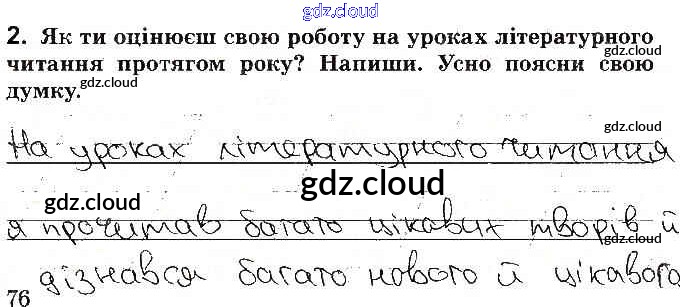 gdz.cloud
2. Як ти оцінюєш свою роботу на уроках літературного
читання протягом року? Напиши. Усно поясни свою
gdz.cloud
gdz.cloud
думку.
gdz.cloud
На уроках літературного читання
gdz.cloud
gdz.cloud
gdz.cloud
я прочитав багато цікавих творів й
дізнався багато нового й цікавого
gdz.cloud
76